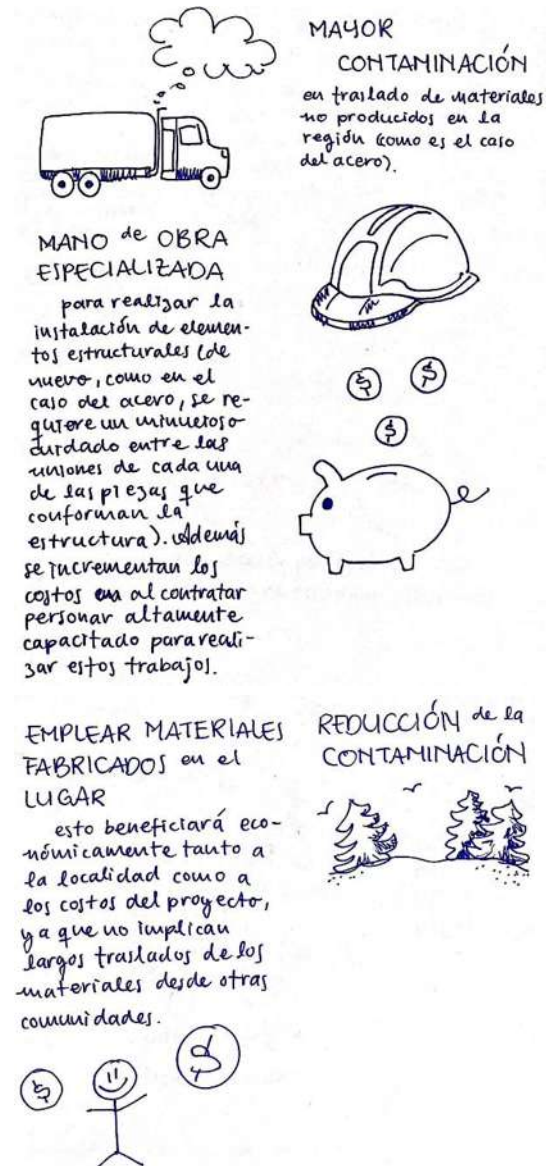 MAYOR
CONTAMINACIÓN
en traslado de materiales
no producidos en la
región (como es el caso
del acero).
MANO de OBRA
ESPECIALIZADA
para realizar la
instalación de elemen-
tos estructurales (de
nuevo, como en el
caso del acero, se re-
quiere un minucioso
cuidado entre las
uniones de cada una
de las piezas que
conforman la
estructura). Además
se incrementan los
costos al contratar
personar altamente
capacitado para reali-
zar estos trabajos.
$ $
$
EMPLEAR MATERIALES
FABRICADOS en el
LUGAR
esto beneficiará eco-
nómicamente tanto a
la localidad como a
los costos del proyecto,
ya que no implican
largos traslados de los
materiales desde otras
comunidades.
REDUCCIÓN de la
CONTAMINACIÓN
$ $